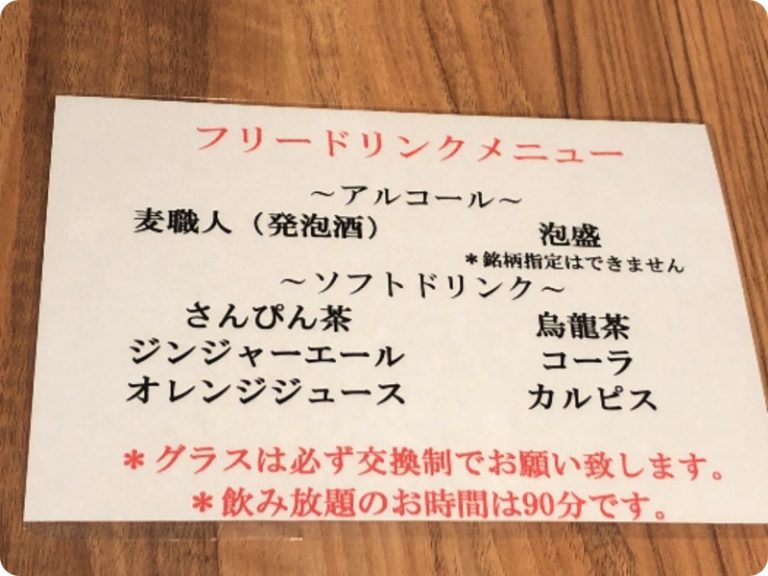 フリードリンクメニュー
～アルコール～
麦職人（発泡酒） 泡盛
＊銘柄指定はできません
～ソフトドリンク～
さんぴん茶 烏龍茶
ジンジャーエール コーラ
オレンジジュース カルピス
＊グラスは必ず交換制でお願い致します。
＊飲み放題のお時間は90分です。